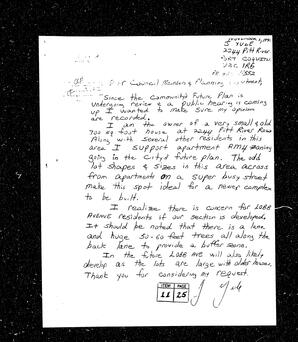 November 1, 19
S YULE
2244 Pitt River
PORT COQUITLAM
V3C 1R6
Dear Council Members, Planning Department,
Since the Community Future Plan is
undergoing review & a public hearing is coming
up I wanted to make sure my opinions
are recorded.
I am the owner of a very small & old
700 sq foot house at 2244 Pitt River Road
Along with several other residents in this
area I support apartment RM4 zoning
going in the City's future plan. The odd
lot shapes & sizes in this area across
from apartments on a super busy street
make this spot ideal for a newer complex
to be built.
I realize there is concern for LOBB
AVENUE residents if our section is developed.
It should be noted that there is a lane
and huge 50-60 feet trees all along the
back lane to provide a buffer zone.
In the future LOBB AVE will also likely
develop as the lots are large with older houses.
Thank you for considering my request.
S Yule
ITEM PAGE
11 25